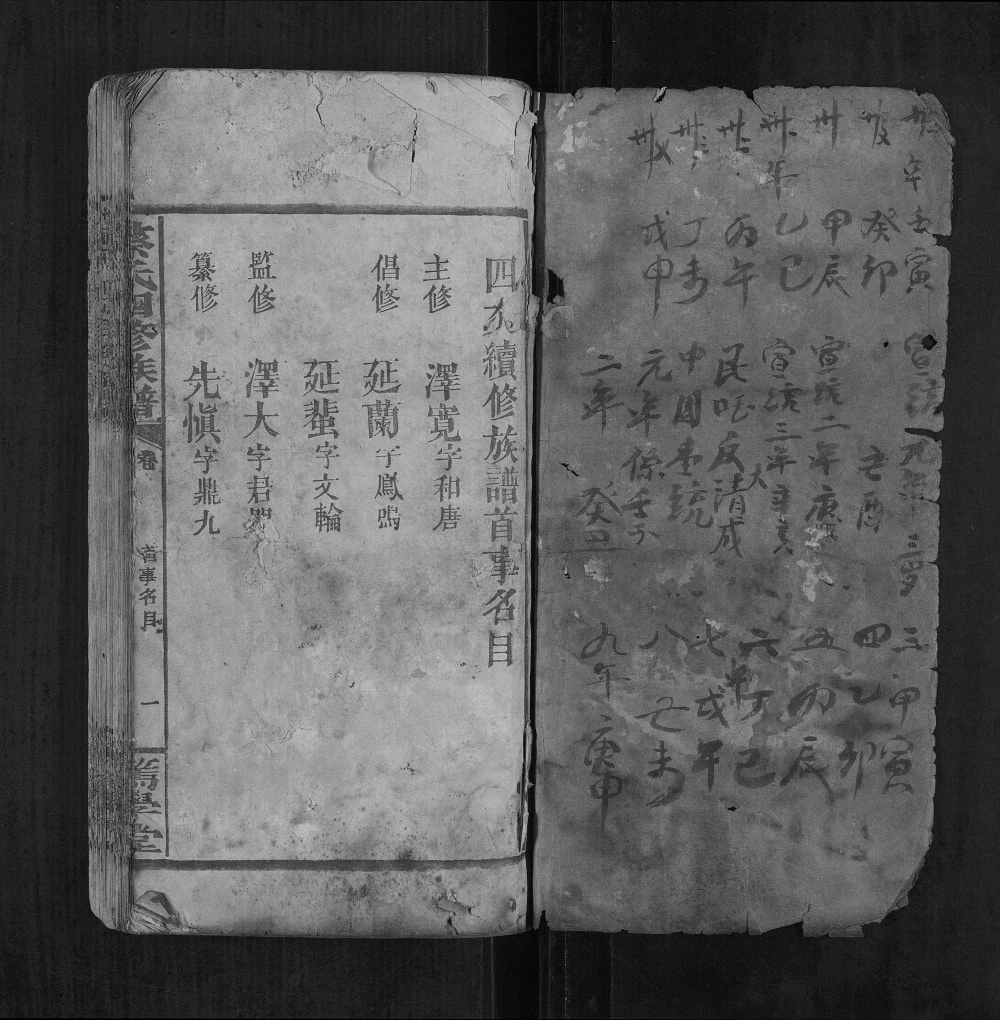 卅年 壬寅 宣統元年 三 甲寅
癸卯 己酉 四 乙卯
卅 甲辰 宣統二年庚戌 五 丙辰
卅一年 乙巳 宣統三年辛亥 六年丁巳
卅二 丙午 民 反大清成 七 戊午
卅三 丁未 中國 統 八 己未
卅四 戊申 元年係壬子 九年 庚申
二年 癸丑
四次續修族譜首事名目
主修 澤寬字和唐
倡修 延蘭字鳳鳴
延蜚字文輪
監修 澤大字君
纂修 先慎字鼎九
蔡氏四修族譜 卷 首事名目 一 篤學堂